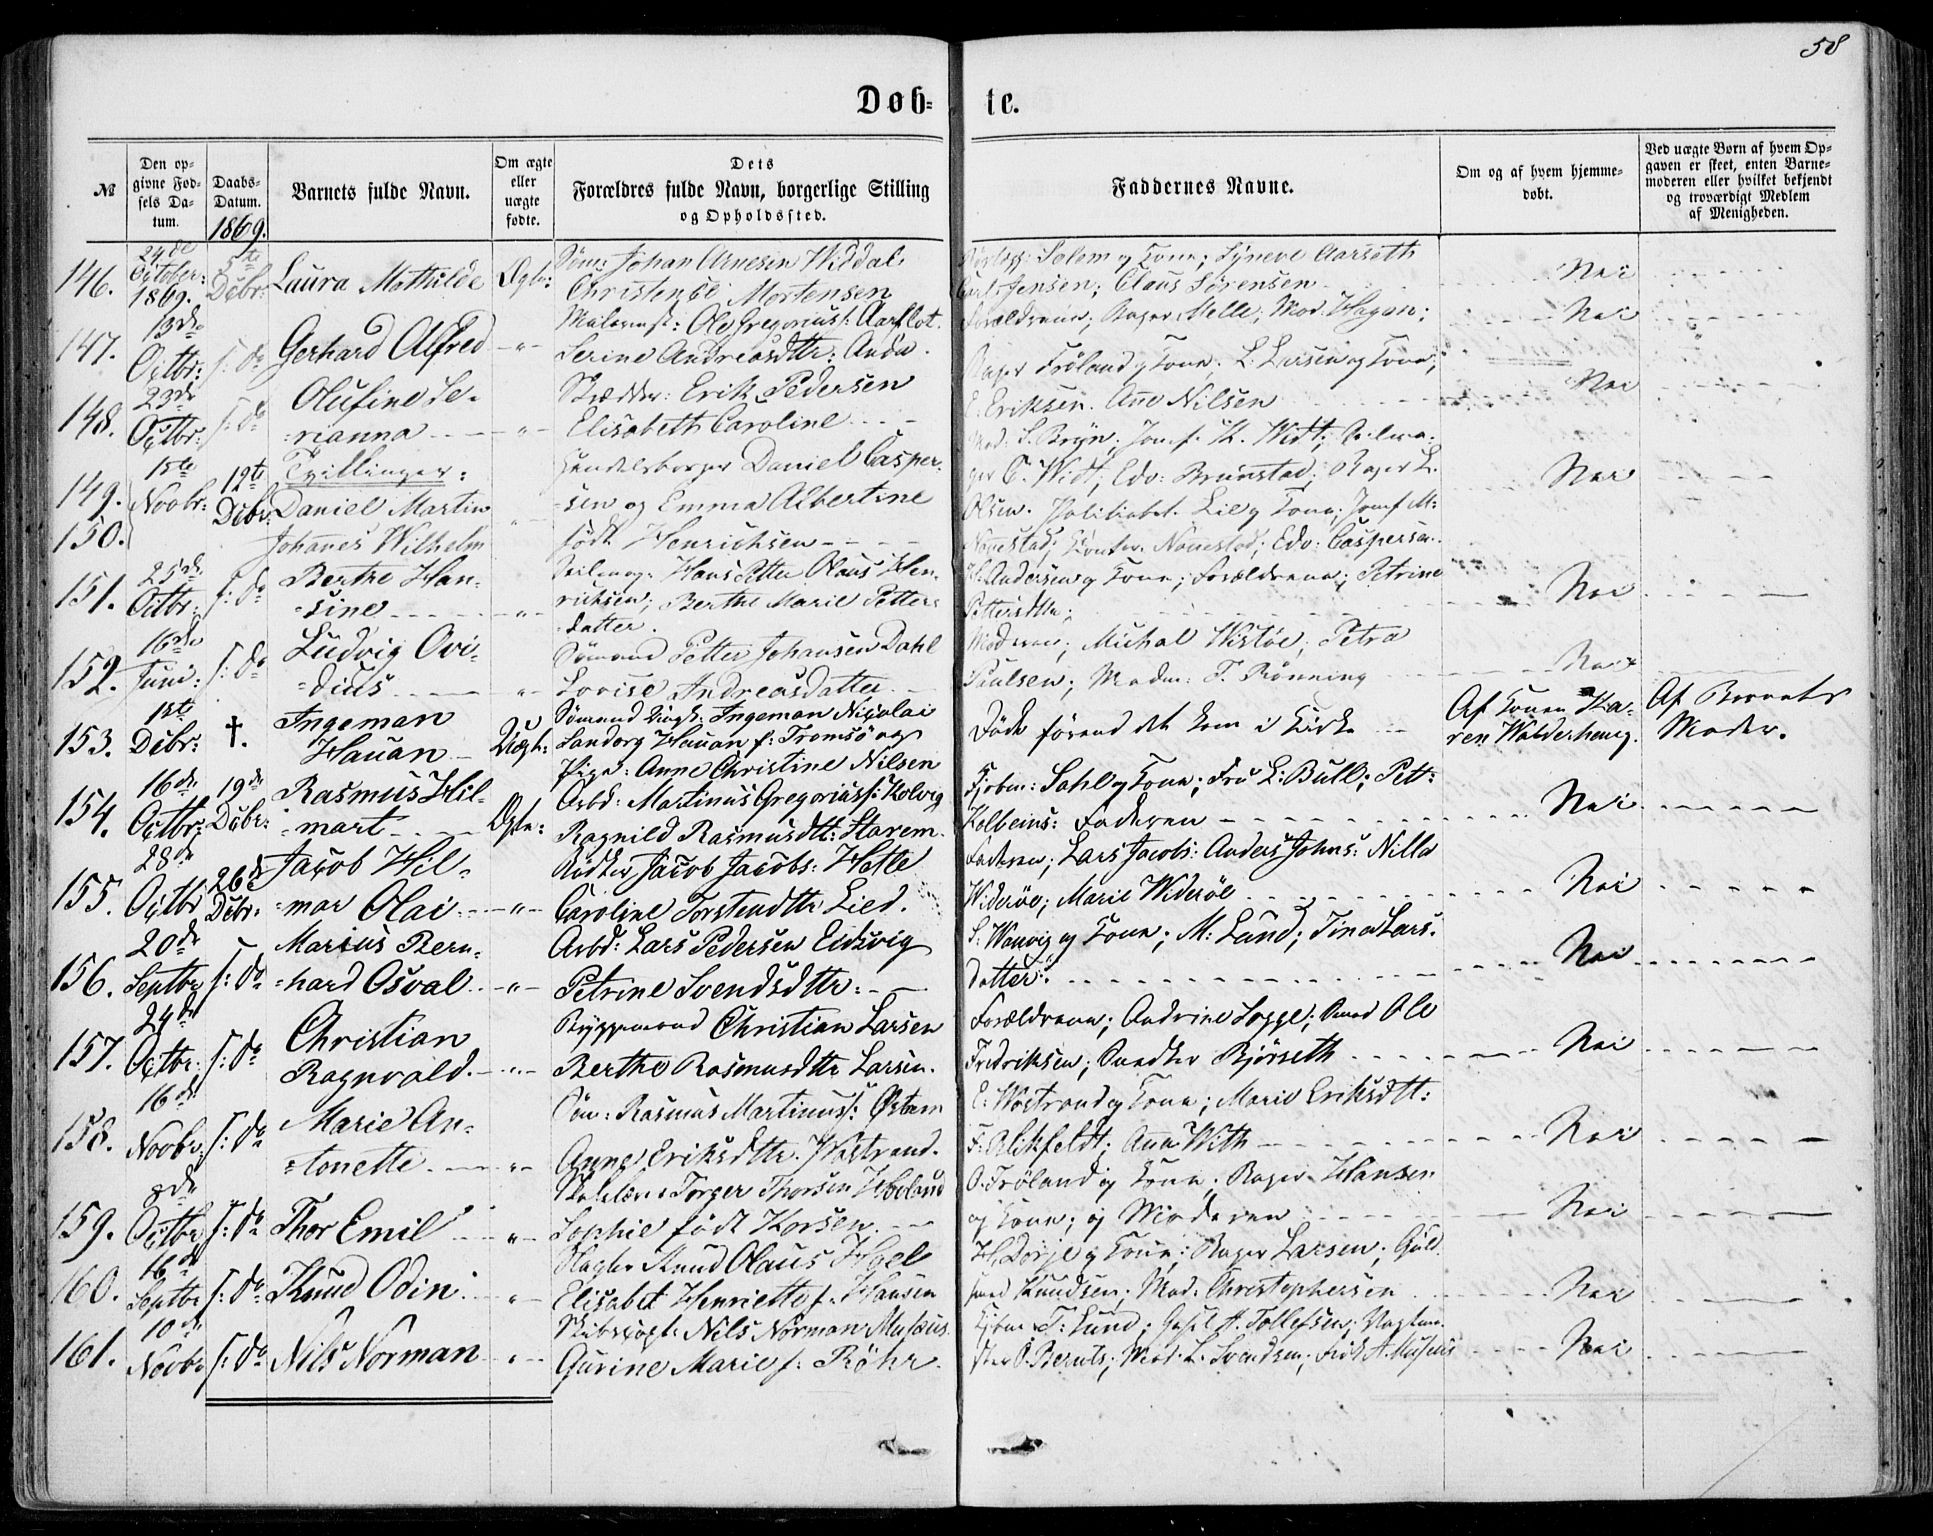 58
Døb- te.
№
Den op-
givne Fød-
sels Da-
tum.
Daabs-
Datum.
1869.
Barnets fulde Navn.
Om ægte
eller
uægte
fødte.
Dets
Forældres fulde Navn, borgerlige Stilling
og Opholdssted.
Faddernes Navne.
Om og af hvem hjemme-
døbt.
Ved uægte Børn af hvem Op-
gaven er skeet, enten Barne-
moderen eller hvilket bekjendt
og troværdigt Medlem
af Menigheden.
146. 24de October: 1869. 5te Dcbr: Laura Mathilde Ægte: Johan Arnesen Widdal
Mortensen
Salem og Kone; Syneve Aarseth
Jensen; Claus Sørensen Nei
147. 13de Octbr: s: D. Gerhard Alfred -"- Ole Gregoriuss: Aarflot.
Serine Andreasdttr: Anda.
Forældrene; Bager Melle; Mad. Hagen; Nei
148. 23de Octbr: s: D. Olufine Se-
=rianna -"- Erik Pedersen
Elisabeth Caroline
Bager Frøland og Kone; L. Larsen og Kone;
E. Eriksen. Ane Nilsen Nei
149. 150. 1ste Novbr: 12te Dcbr: Tvillinger:
Daniel Martin
Johannes Wilhelm
Handelsborger Daniel Casper-
sen og Emma Albertine
født Henrichsen
Mad: S. Bryn; Jomf. K. Widt;
C. Widt; Edv: Brunstad; Bager L.
Olsen. Lie og Kone; Jomf M:
Nonestad; Nonestad; Edv: Caspersen. Nei
151. 25de Octbr: s: D. Berthe Han-
=sine -"- Seilmag: Hans Petter Olaus Hen-
richsen; Berthe Marie Petters
datter.
Andersen og Kone; Forældrene; Petrine
Pettersdttr; Nei
152. 16de Juni: s: D. Ludvig Ovi-
=dius -"- Sømand Petter Johansen Dahl
Lovise Andreasdatter
Moderen; Michal Wistøe; Petra
Paulsen; Madm: T. Rønning Nei
153. 1ste Dcbr: †. Ingeman
Hauan Uægt: Sømand Ingeman Nicolai
Hauan f: Tromsø og
Pige: Anne Christine Nilsen
Døde førend det kom i Kirke
Af Konen Ka-
ren Walderhaug.
Af Barnets
Moder.
154. 16de Octbr: 19de Dcbr: Rasmus Hil-
=mart Ægte: Arbd: Martinus Gregoriuss: Kolvig
Ragnild Rasmusdtt: Starem.
Kjøbm: Sahl og Kone; Fru L: Bull; Pett:
Kolbeins: Faderen Nei
155. 28de Octbr 26de Dcbr: Jacob Hil-
=mar Olai -"- Bødker Jacob Jacobs: Helle
Caroline Torstendttr Lied.
Faderen; Lars Jacobs: Anders Johns: Nilla
Widerøe; Marie Widerøe Nei
156. 20de Septbr s: D. Marius Bern-
=hard Osval -"- Arbd: Lars Pedersen Eidsvig
Petrine Svendsdttr:
S: Wanvig og Kone; M: Lund; Tina Lars:
datter: Nei
157. 24de Octbr: s: D. Christian
Ragnvald -"- Byggemand Christian Larsen
Berthe Rasmusdttr Larsen.
Forældrene; Andrine Sogge; Smed Ole
Fredriksen; Snedker Bjørseth Nei
158. 16de Novbr: s: D. Marie An-
=tonette -"- Søm: Rasmus Martinuss: Østrem
Anne Eriksdttr. Westrand.
E: Westrand og Kone; Marie Eriksdtt:
F: Blikfeldt; Anna With Nei
159. 8de Octbr s: D. Thor Emil -"- Torger Thorsen Hoeland
Sophie født Korsen.
O. Frøland og Kone. Bager Hansen
og Kone; og Moderen Nei
160. 16de Septbr s: D. Knud Odin -"- Slagter Knud Olaus Hoel
Elisabet Henriette f. Hansen
H. Dorje og Kone; Bager Larsen; Guld-
smed Knudsen; Mad. Christophersen Nei
161. 10de Novbr s: D. Nils Norman -"- Nils Norman Musæus.
Gurine Marie f. Röhr.
Kjøbm T: Lund; A. Tollefsen;
O. Bernts; Mad. L. Svendsen; Frøk A. Musæus Nei